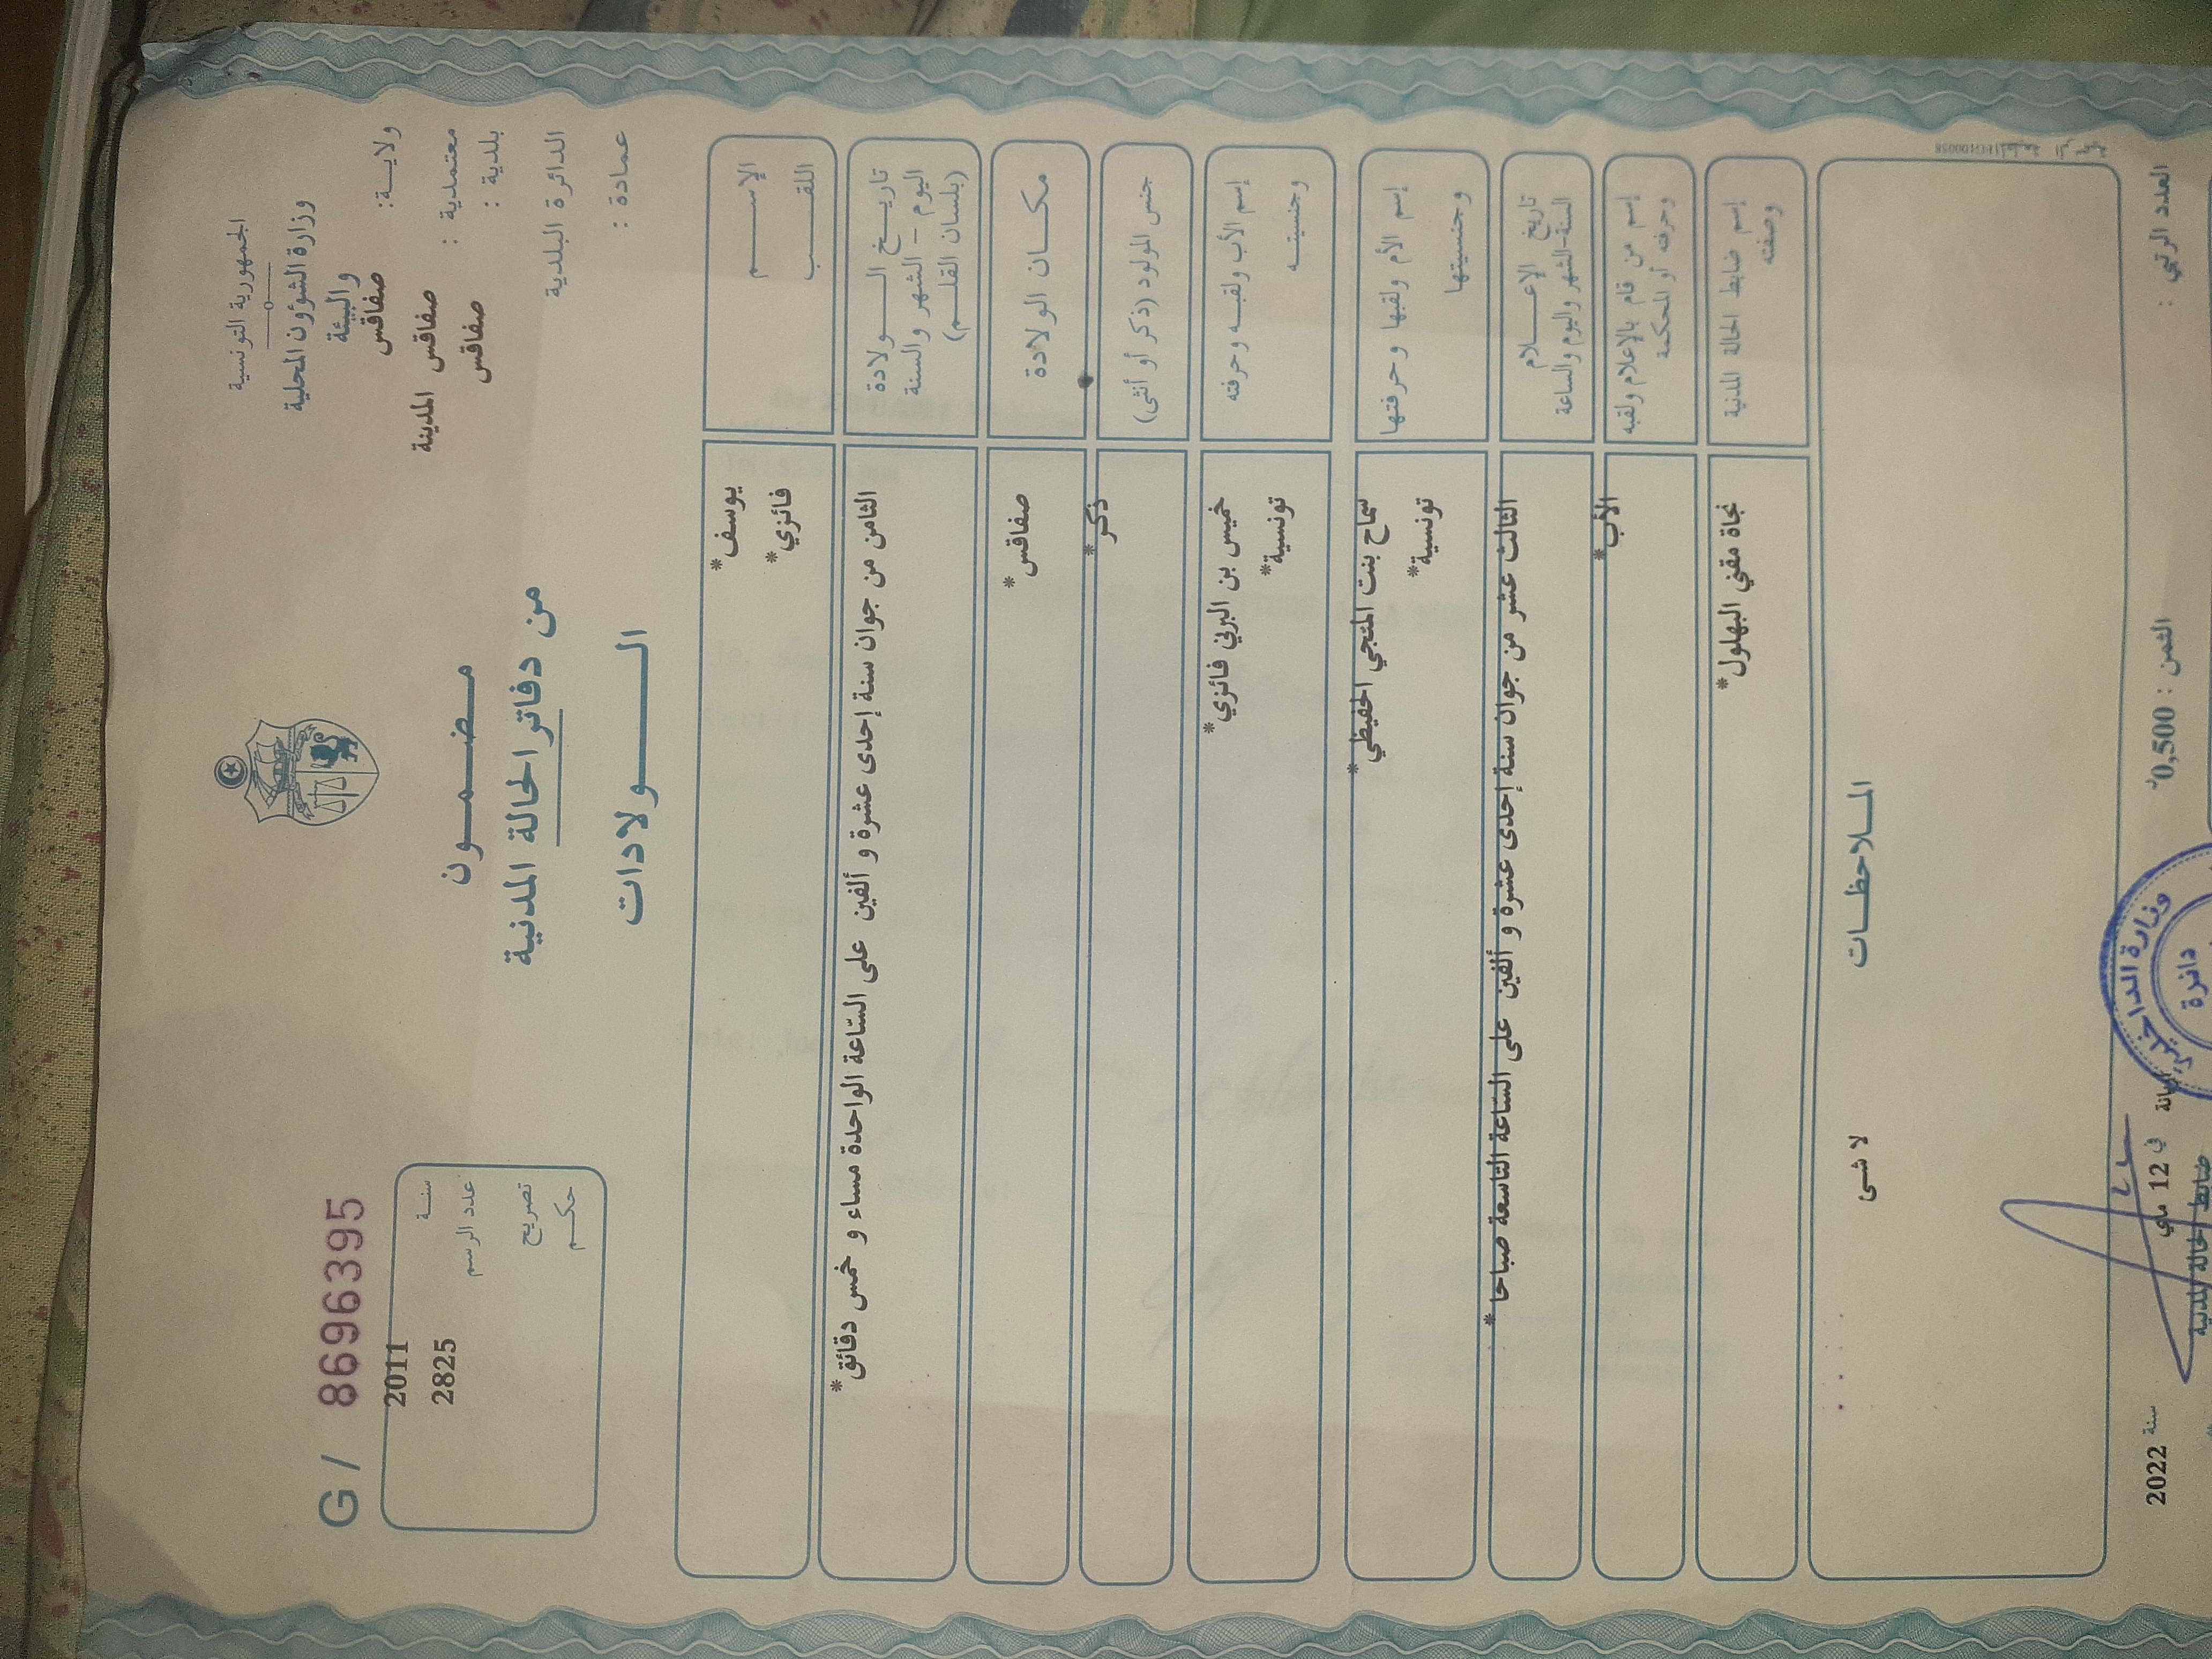 الجمهورية التونسية
وزارة الشؤون المحلية
والبيئة
ولايـــة: صفاقس
معتمدية : صفاقس المدينة
بلدية : صفاقس
الدائرة البلدية
عمادة :
G / 8696395
سنــة 2011
عدد الرسم 2825
تصريح
حكــم
مــضــمــون
من دفاتر الحالة المدنية
الـــولادات
الإســـــم يوسف*
اللقـــب فائزي*
تاريــخ الــــولادة
اليوم - الشهر والسنة
(بلسان القلــم)
الثامن من جوان سنة إحدى عشرة و ألفين على السّاعة الواحدة مساء و خمس دقائق*
مكــان الولادة صفاقس*
جنس المولود (ذكر أو أنثى) ذكر*
إسم الأب ولقبــه وحرفته خميس بن البرني فائزي*
وجنسيتــه تونسية*
إسم الأم ولقبها وحرفتها سماح بنت المنجي الحفيظي*
وجنسيتها تونسية*
تاريخ الإعــــلام
السنة-الشهر واليوم والساعة
الثالث عشر من جوان سنة إحدى عشرة و ألفين على السّاعة التاسعة صباحا*
إسم من قام بالإعلام ولقبه
وحرفته أو المحكمة
الأب*
إسم ضابط الحالة المدنية
وصفته
نجاة مقني البهلول*
المــلاحظــات
لا شئ
العدد الرتبي :
الثمن : 0,500د
في 12 ماي سنة 2022
ضابط الحالة المدنية
وزارة الداخلية
دائرة